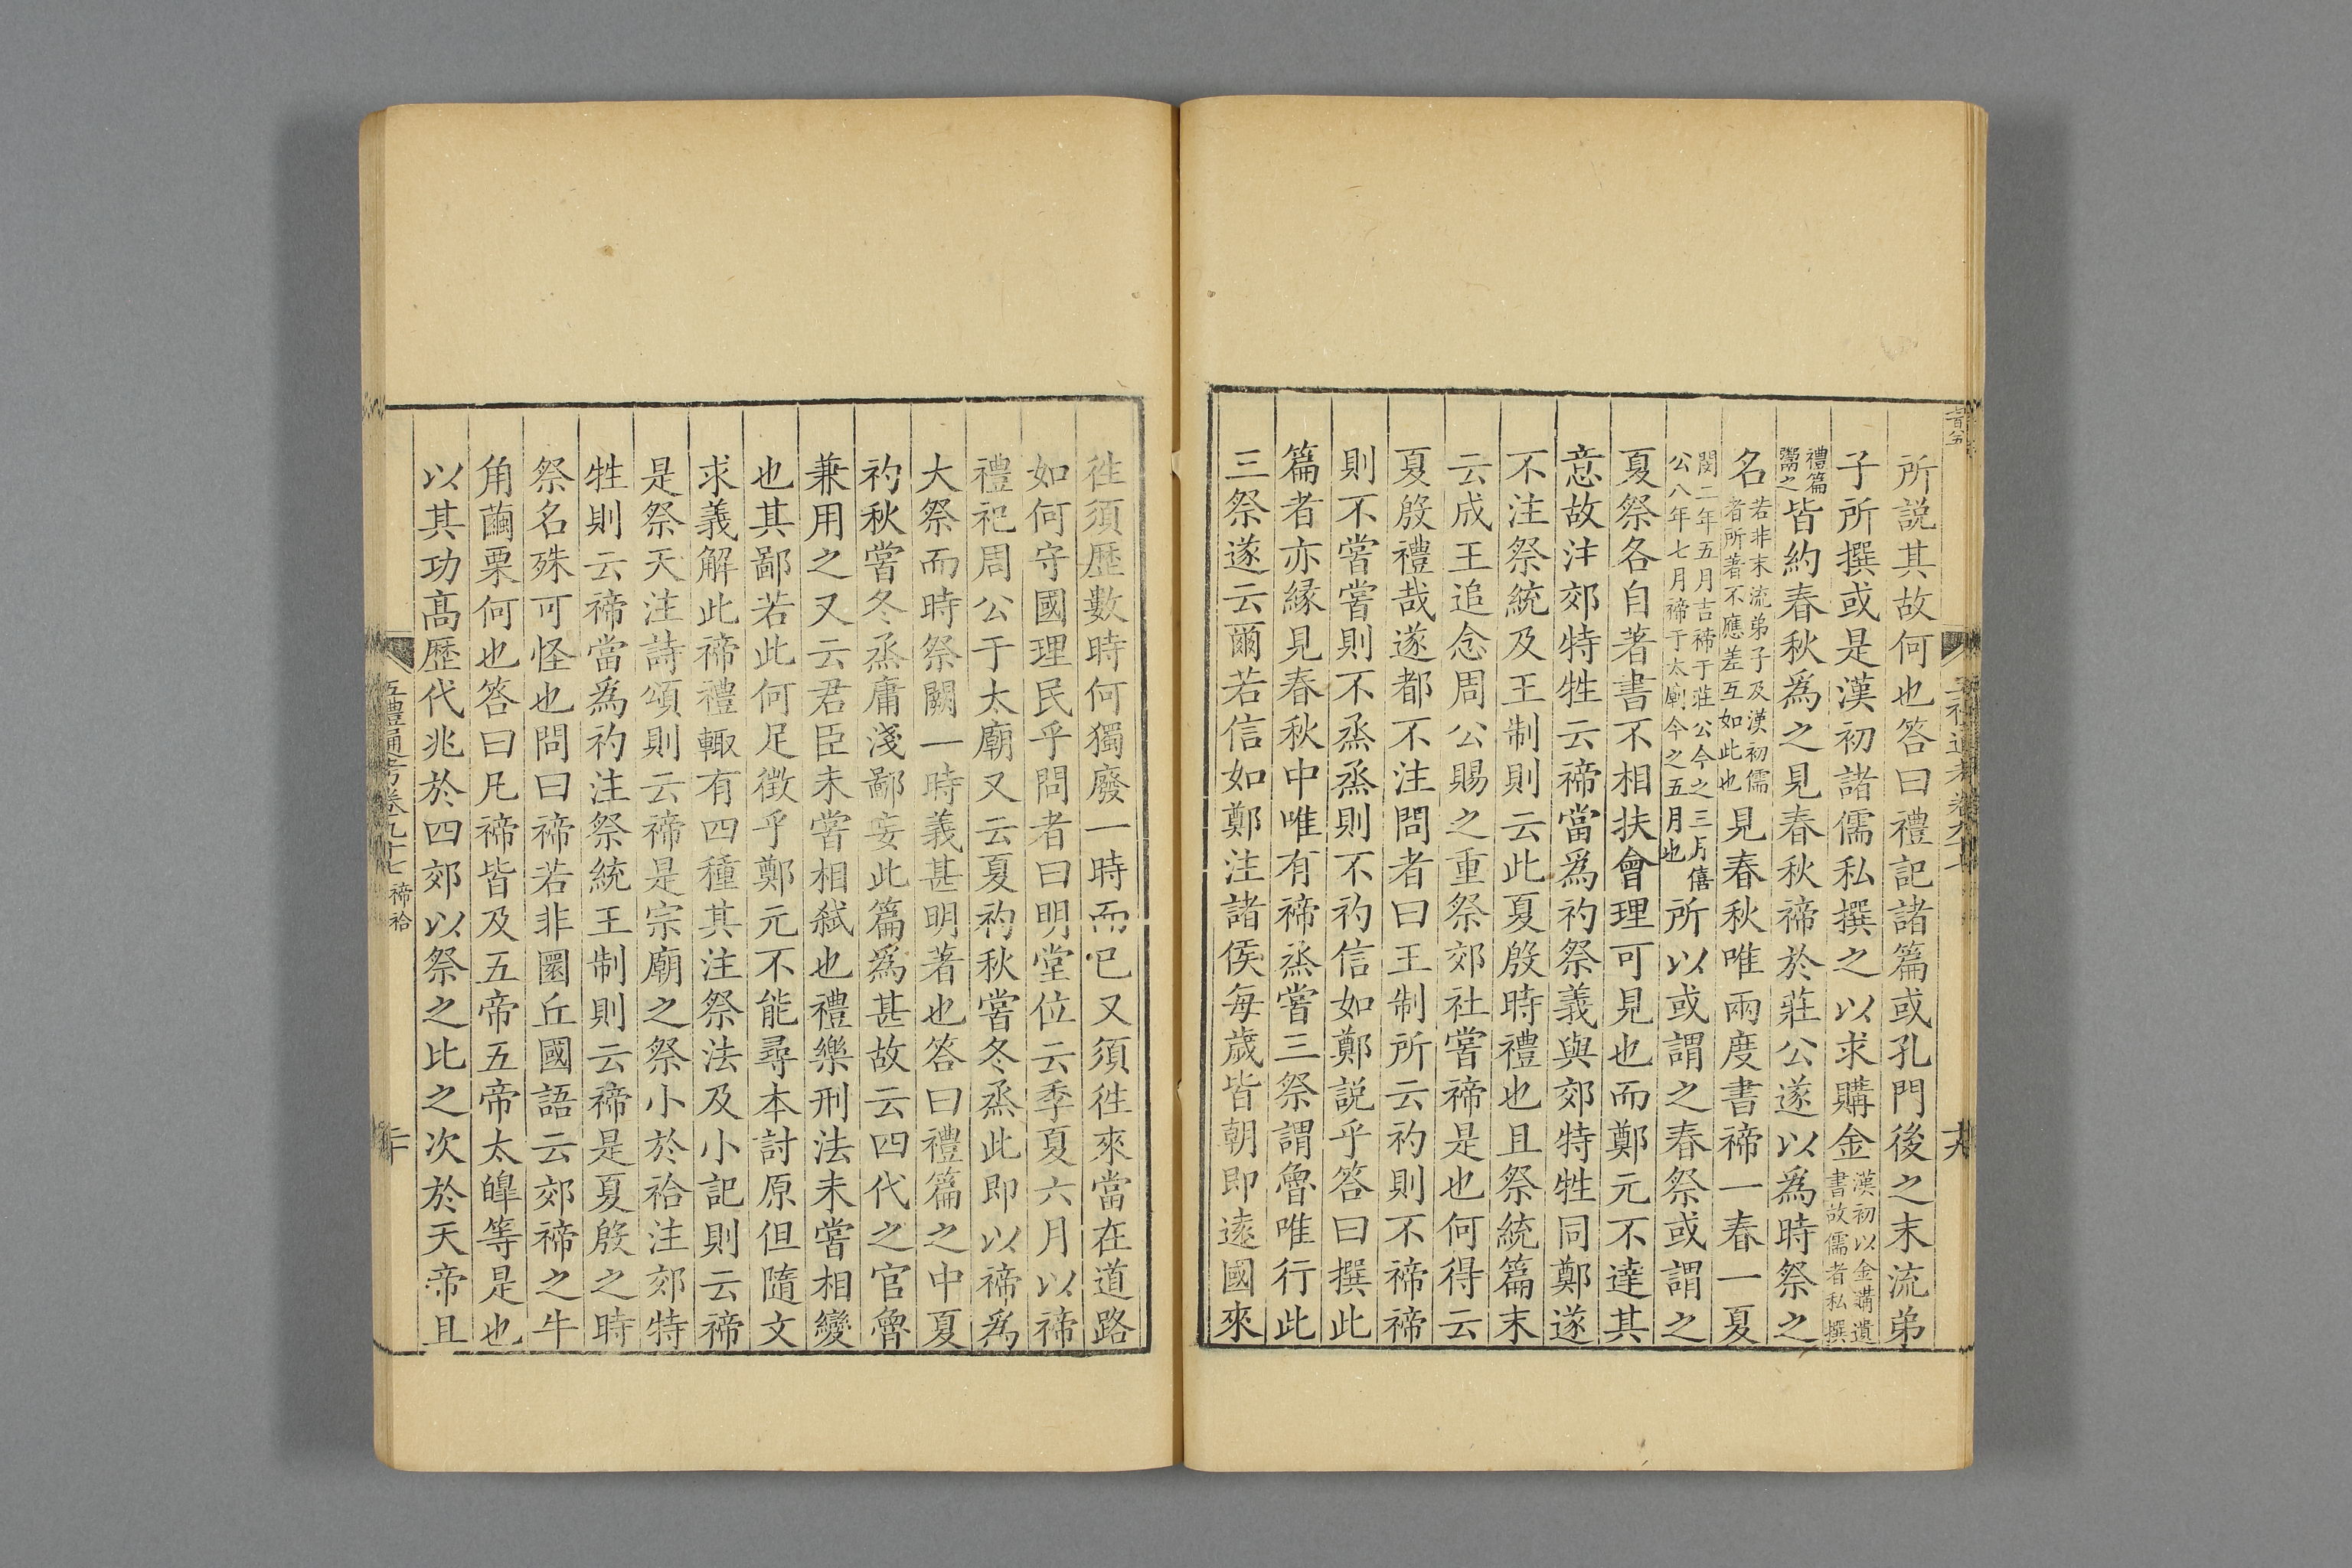 所説其故何也答曰禮記諸篇或孔門後之末流弟
子所撰或是漢初諸儒私撰之以求購金漢初以金購遺書故儒者私撰
禮篇鬻之皆約春秋爲之見春秋禘於莊公遂以爲時祭之
名若非末流弟子及漢初儒者所著不應差互如此也見春秋唯兩度書禘一春一夏
閔二年五月吉禘于莊公今之三月僖公八年七月禘于太廟今之五月也所以或謂之春祭或謂之
夏祭各自著書不相扶會理可見也而鄭元不達其
意故注郊特牲云禘當爲礿祭義與郊特牲同鄭遂
不注祭統及王制則云此夏殷時禮也且祭統篇末
云成王追念周公賜之重祭郊社嘗禘是也何得云
夏殷禮哉遂都不注問者曰王制所云礿則不禘禘
則不嘗嘗則不烝烝則不礿信如鄭説乎答曰撰此
篇者亦縁見春秋中唯有禘烝嘗三祭謂魯唯行此
三祭遂云爾若信如鄭注諸侯每歲皆朝即逺國來
徃須歴數時何獨廢一時而已又須徃來當在道路
如何守國理民乎問者曰明堂位云季夏六月以禘
禮祀周公于太廟又云夏礿秋嘗冬烝此即以禘爲
大祭而時祭闕一時義甚明著也答曰禮篇之中夏
礿秋嘗冬烝庸淺鄙妄此篇爲甚故云四代之官魯
兼用之又云君臣未嘗相弑也禮樂刑法未嘗相變
也其鄙若此何足徴乎鄭元不能尋本討原但隨文
求義解此禘禮輙有四種其注祭法及小記則云禘
是祭天注詩頌則云禘是宗廟之祭小於祫注郊特
牲則云禘當爲礿注祭統王制則云禘是夏殷之時
祭名殊可怪也問曰禘若非圜丘國語云郊禘之牛
角繭栗何也答曰凡禘皆及五帝五帝太皥等是也
以其功髙歴代兆於四郊以祭之比之次於天帝且
五禮通考卷九十七 禘祫